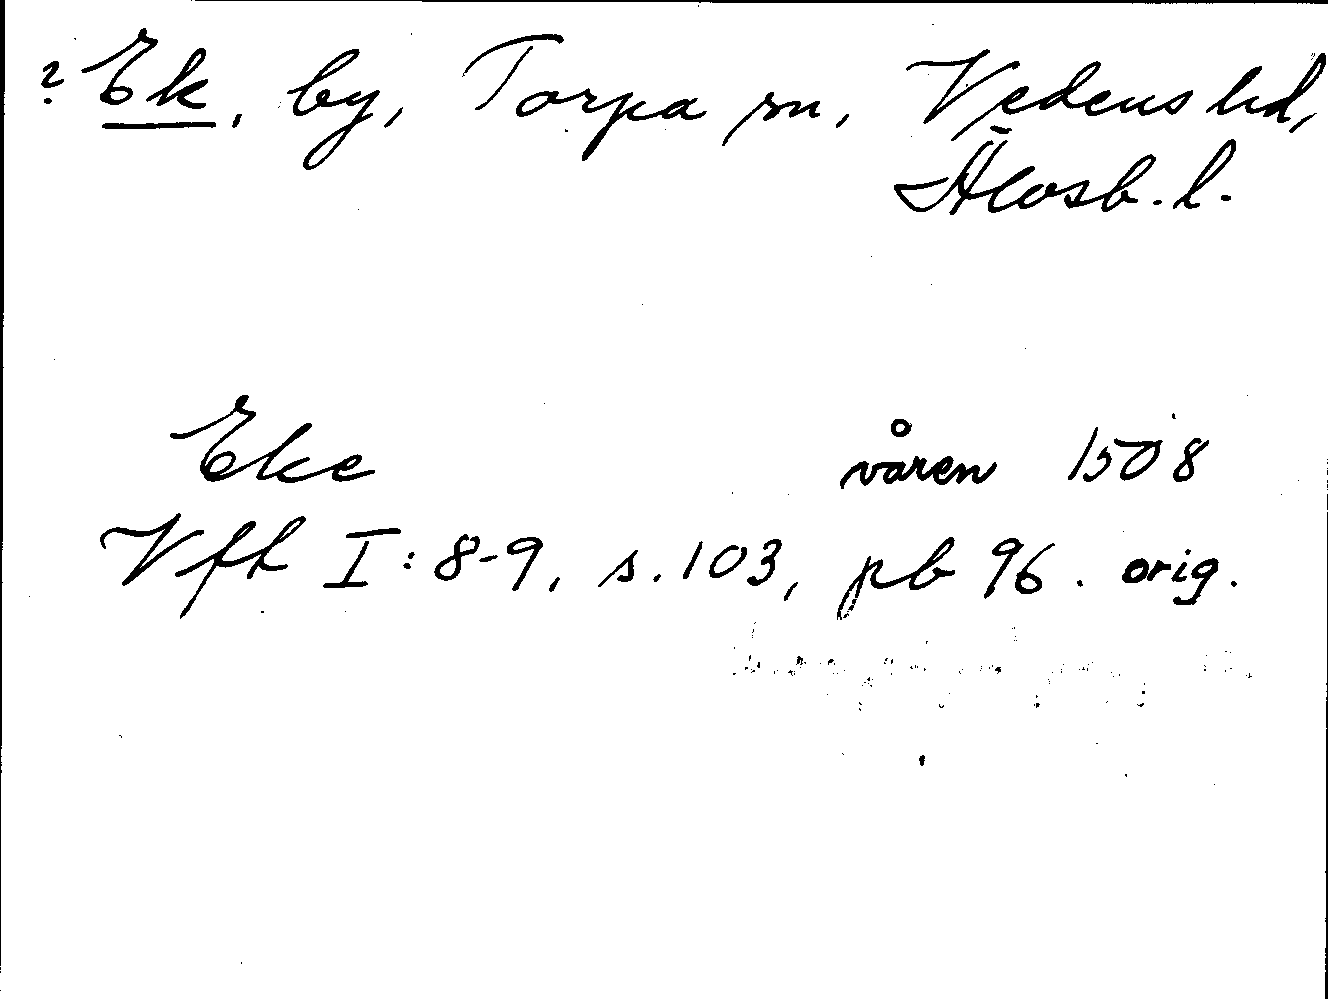 ? Ek, by, Torpa sn, Vedens hd,
Älvsb. l.
Eke våren 1508
Vfh I: 8-9, s. 103, pb 96. orig.